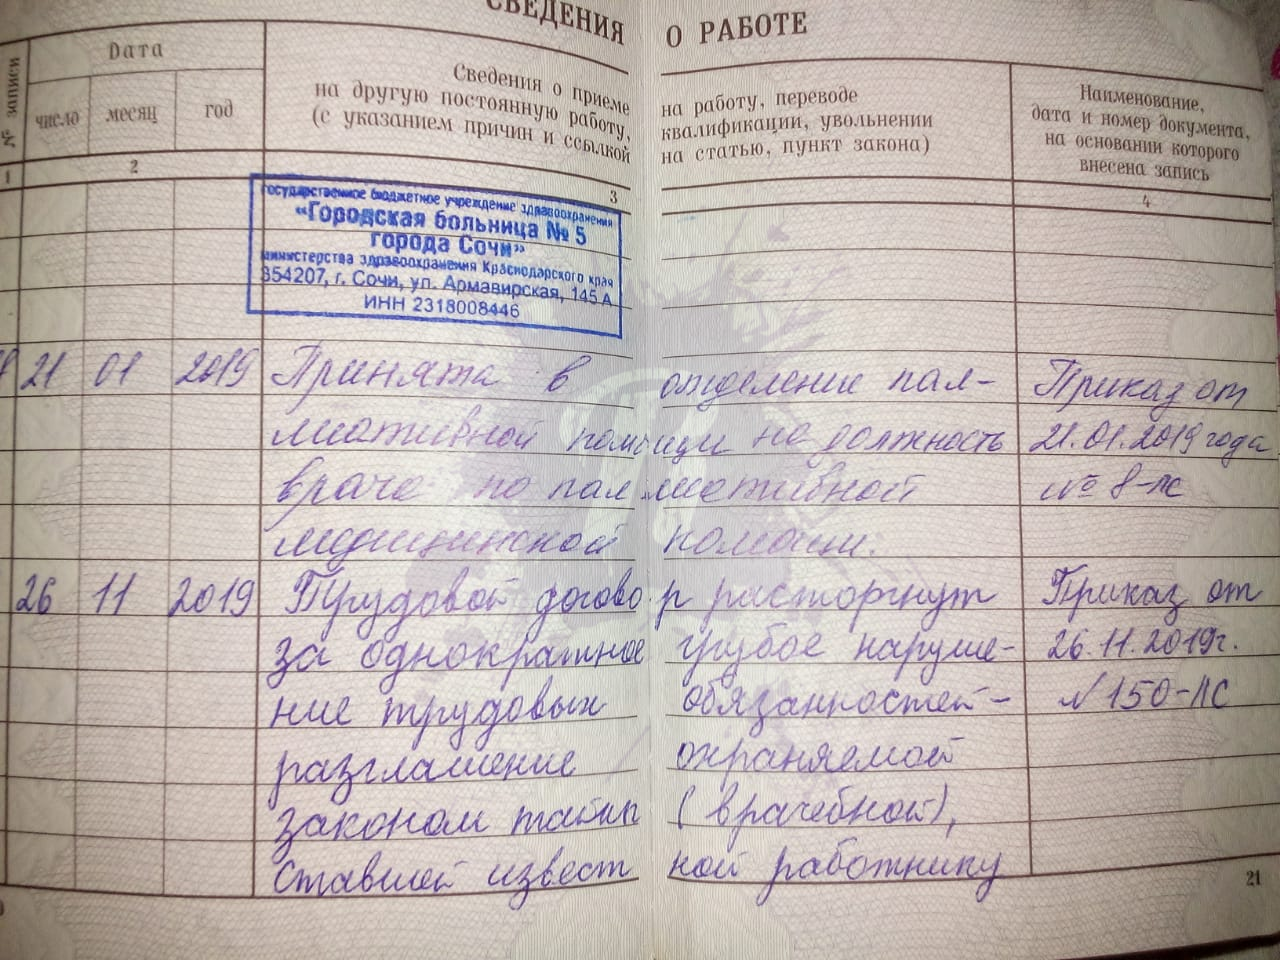 СВЕДЕНИЯ О РАБОТЕ
№ записи
Дата
число месяц год
Сведения о приеме на работу, переводе
на другую постоянную работу, квалификации, увольнении
(с указанием причин и ссылкой на статью, пункт закона)
Наименование,
дата и номер документа,
на основании которого
внесена запись
1 2 3 4
государственное бюджетное учреждение здравоохранения
"Городская больница № 5
города Сочи"
министерства здравоохранения Краснодарского края
354207, г. Сочи, ул. Армавирская, 145 А
ИНН 2318008446
21 01 2019 Принята в отделение пал- Приказ от
лиативной помощи на должность 21.01.2019 года
врача по паллиативной № 8-лс
медицинской помощи.
26 11 2019 Трудовой договор расторгнут Приказ от
за однократное грубое наруше- 26.11.2019г.
ние трудовых обязанностей- N 150-лс
разглашение охраняемой
законом тайны (врачебной),
Ставшей известной работнику
21